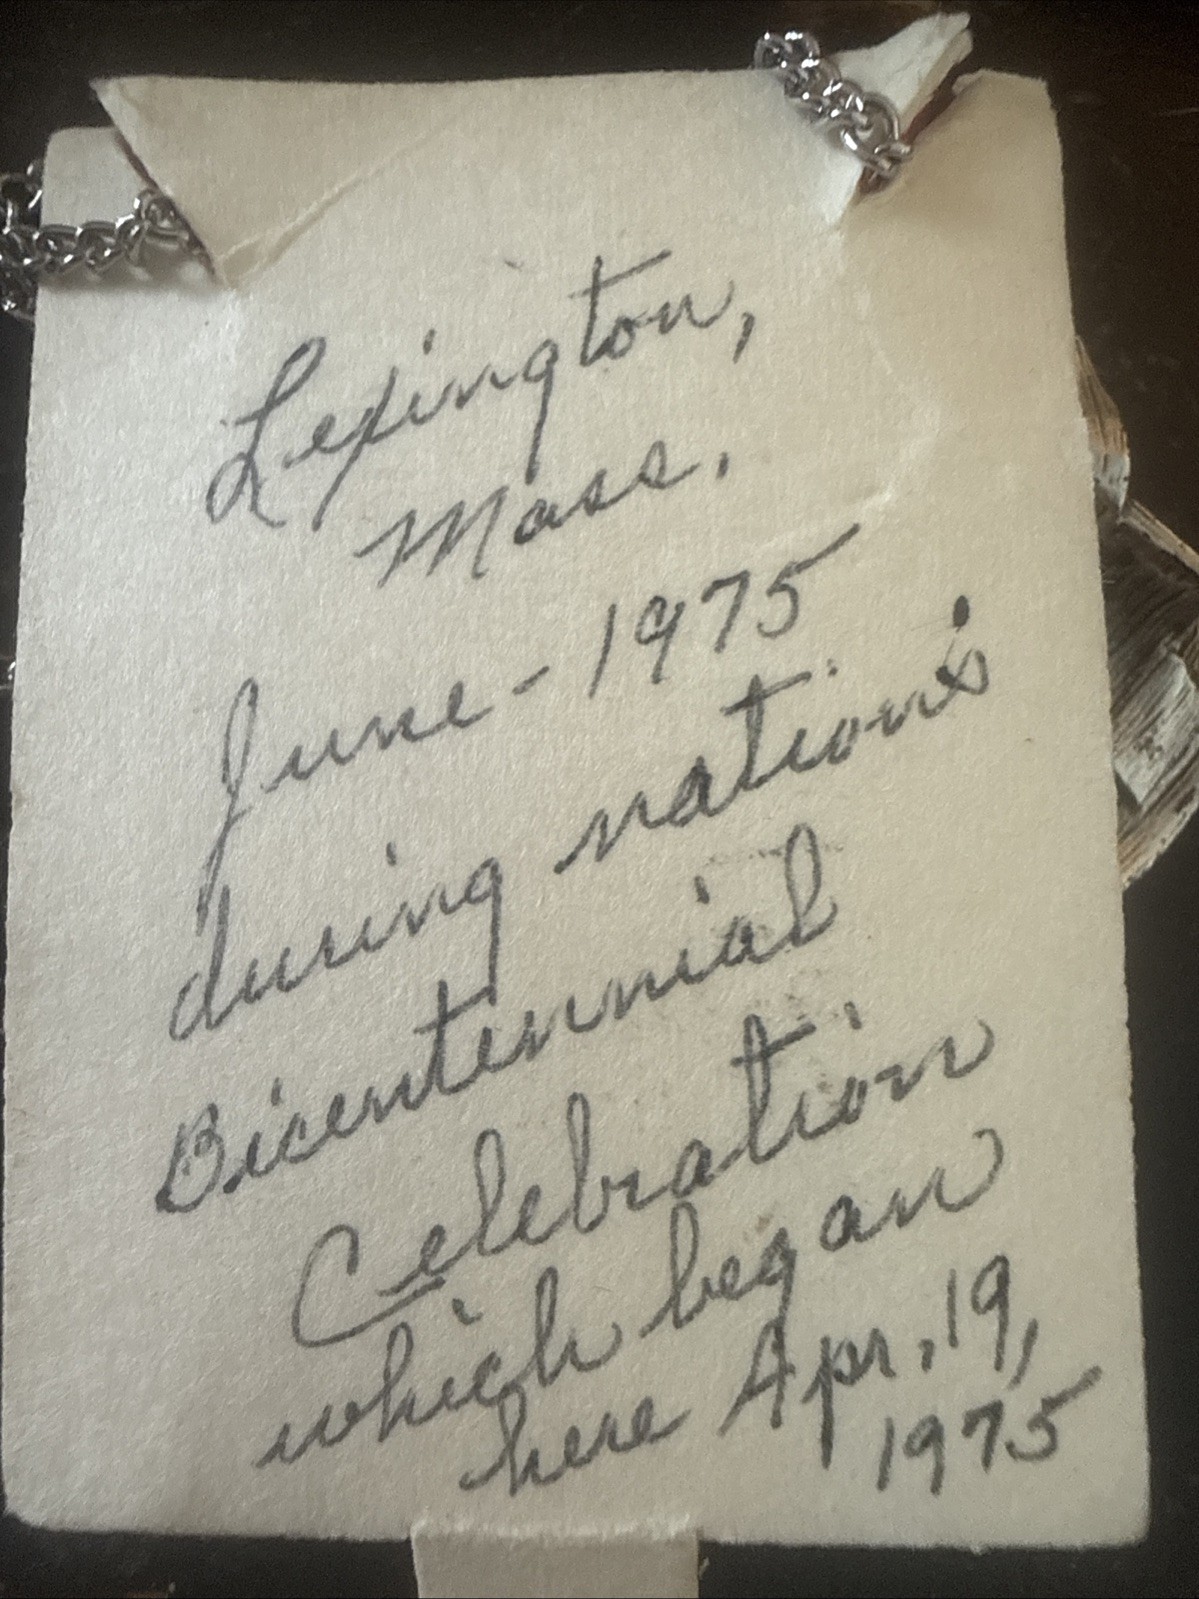 Lexington,
Mass.
June - 1975
during nation's
Bicentennial
Celebration
which began
here Apr. 19,
1975